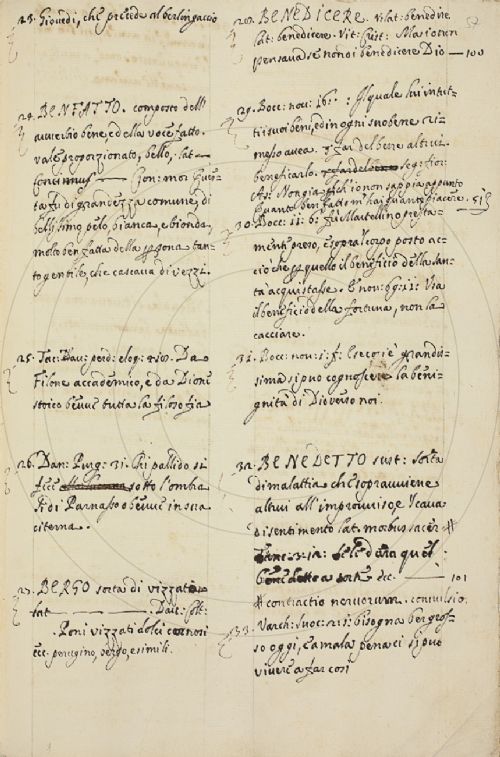 23. Giovedì, che precede al berlingaccio
24. BENFATTO. composto dell'
avverbio bene, e della voce fatto.
vale proporzionato, bello, lat
formosus Gon: mor:
ta fu di grandezza comune, di
bellissimo pelo, bianca, e bionda,
molto ben fatta della persona tan-
to gentile, che cascava di vezzi.
25. Tac: Dav: perd: eloq: Da
Filone accademico, e da Diodoro
stoico bevve tutta la filosofia
26. Dan: Purg: 31. Chi pallido si
fece sotto l'ombra
sì di Parnasso o bevve in sua
citerna.
27. BERGO sorta di vizzato
lat Dav: Colt:
Poni vizzati dolci
ecc. perugino, bergo, e simili.
28. BENEDICERE. v: lat: benedire
lat: benedicere. Vit: Ma io non
pensava se non di benedicere Dio — 100
29. Bocc: nov: 16: Il quale lui in tut-
ti i suoi beni, ed in ogni suo bene ri-
messo avea. per far del bene altrui.
beneficarlo. seg: fior:
As: Non già perch'io non sappia appunto
quanto ben fatto m'hai quanto piacere. — 515
30. Bocc: 11: 6: fu Martellino presta-
mente preso, e sopra 'l corpo posto ac-
ciò che per quello il beneficio della san-
tà acquistasse. E nov: 69: 11: Usa
il beneficio della fortuna, non la
cacciare.
31. Bocc: nov: 1: f: E se così è grandis-
sima si può cognoscere la beni-
gnità di Dio verso noi.
32. BENEDETTO sust: sorta
di malattia che sopravviene
altrui all'improvviso, e 'l cava
di sentimento lat. morbus sacer #
quel
benedetto a sorte ecc. — 101
# contractio nervorum. convulsio.
33. Varch: suoc: 2: 1: bisogna ber gros-
so oggi, e a mala pena ci si può
vivere a far così